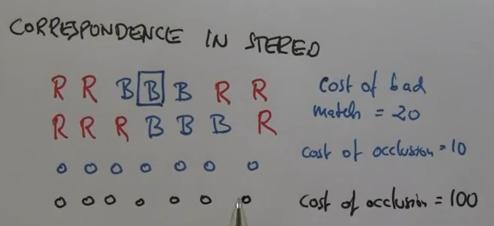 CORRESPONDENCE IN STEREO
R R B B B R R
R R R B B B R
cost of bad
match = 20
o o o o o o o
cost of occlusion = 10
o o o o o o o
cost of occlusion = 100